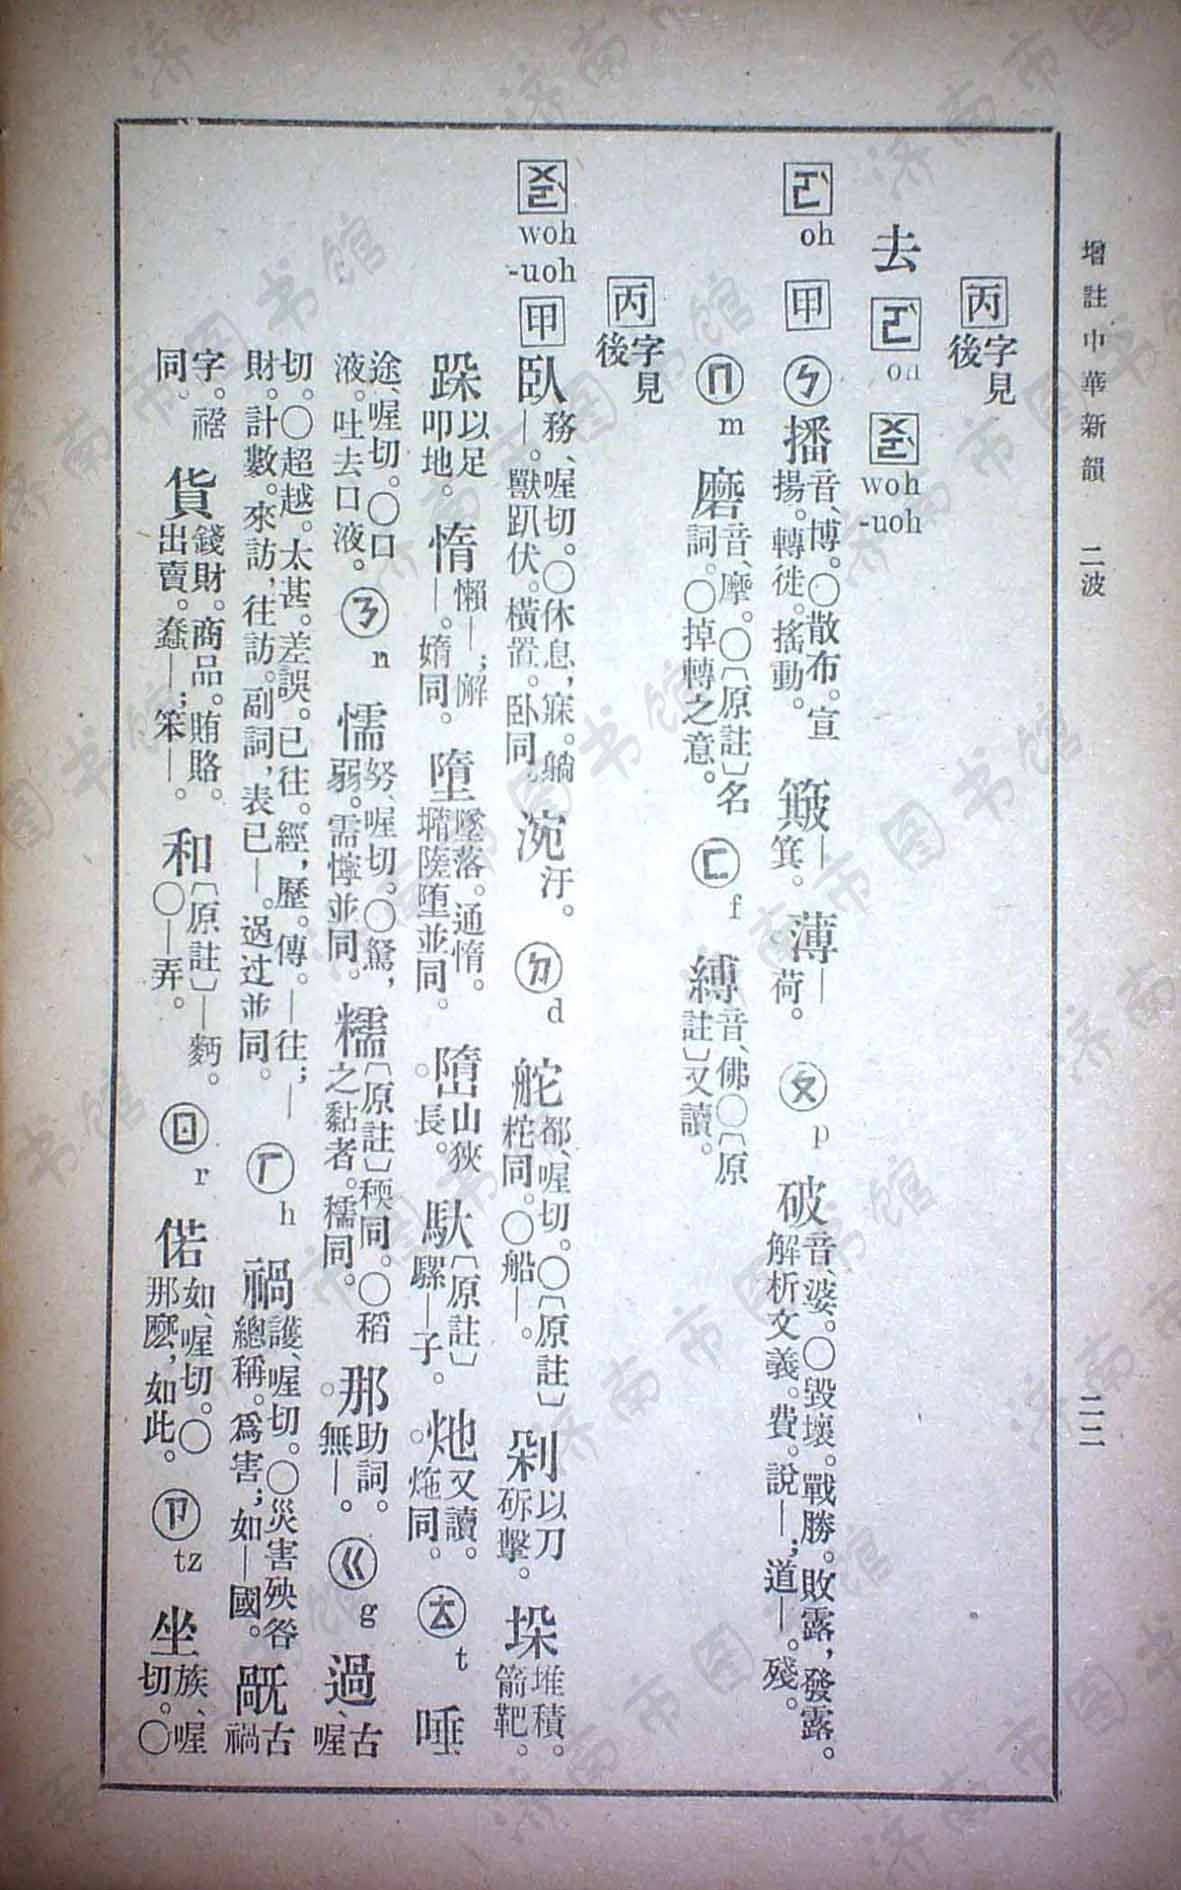 增註中華新韻　二波　二二
丙 字見後
去 ㄛˋ oh ㄨㄛˋ woh -uoh
ㄛˋ oh 甲 ㄅ 播 音、博。〇散布。宣揚。轉徙。搖動。 簸 ｜箕。 薄 ｜荷。 ㄆ p 破 音、婆。〇毀壞。戰勝。敗露，發露。解析文義。費。說｜；道｜。殘。
ㄇ m 磨 音、摩。〇〔原註〕名詞。〇掉轉之意。 ㄈ f 縛 音、佛〇〔原註〕又讀。
丙 字見後
ㄨㄛˋ woh -uoh 甲 臥 務、喔切。〇休息，寐。躺｜。獸趴伏。橫置。卧同。 涴 汙。 ㄉ d 舵 都、喔切。〇〔原註〕柁同。〇船｜。 剁 以刀斫擊。 垛 堆積。箭靶。
跺 以足叩地。 惰 懶｜；懈｜。媠同。 墮 墜落。通惰。墯陊堕並同。 嶞 山狹長。 馱 〔原註〕騾｜子。 灺 又讀。炧同。 ㄊ t 唾
途、喔切。〇口液。吐去口液。 ㄋ n 懦 努、喔切。〇駑，弱。需懧並同。 糯 〔原註〕稬同。〇稻之黏者。穤同。 那 助詞。無｜。 ㄍ g 過 古、喔
切。〇超越。太甚。差誤。已往。經，歷。傳。｜往；｜財。計數。來訪，往訪。副詞，表已｜。過过並同。 ㄏ h 禍 護、喔切。〇災害殃咎總稱。爲害；如｜國。 旤 古禍
字。䄑同。 貨 錢財。商品。賄賂。出賣。蠢｜；笨｜。 和 〔原註〕｜麪。〇｜弄。 ㄖ r 偌 如、喔切。〇那麼，如此。 ㄗ tz 坐 族、喔切。〇